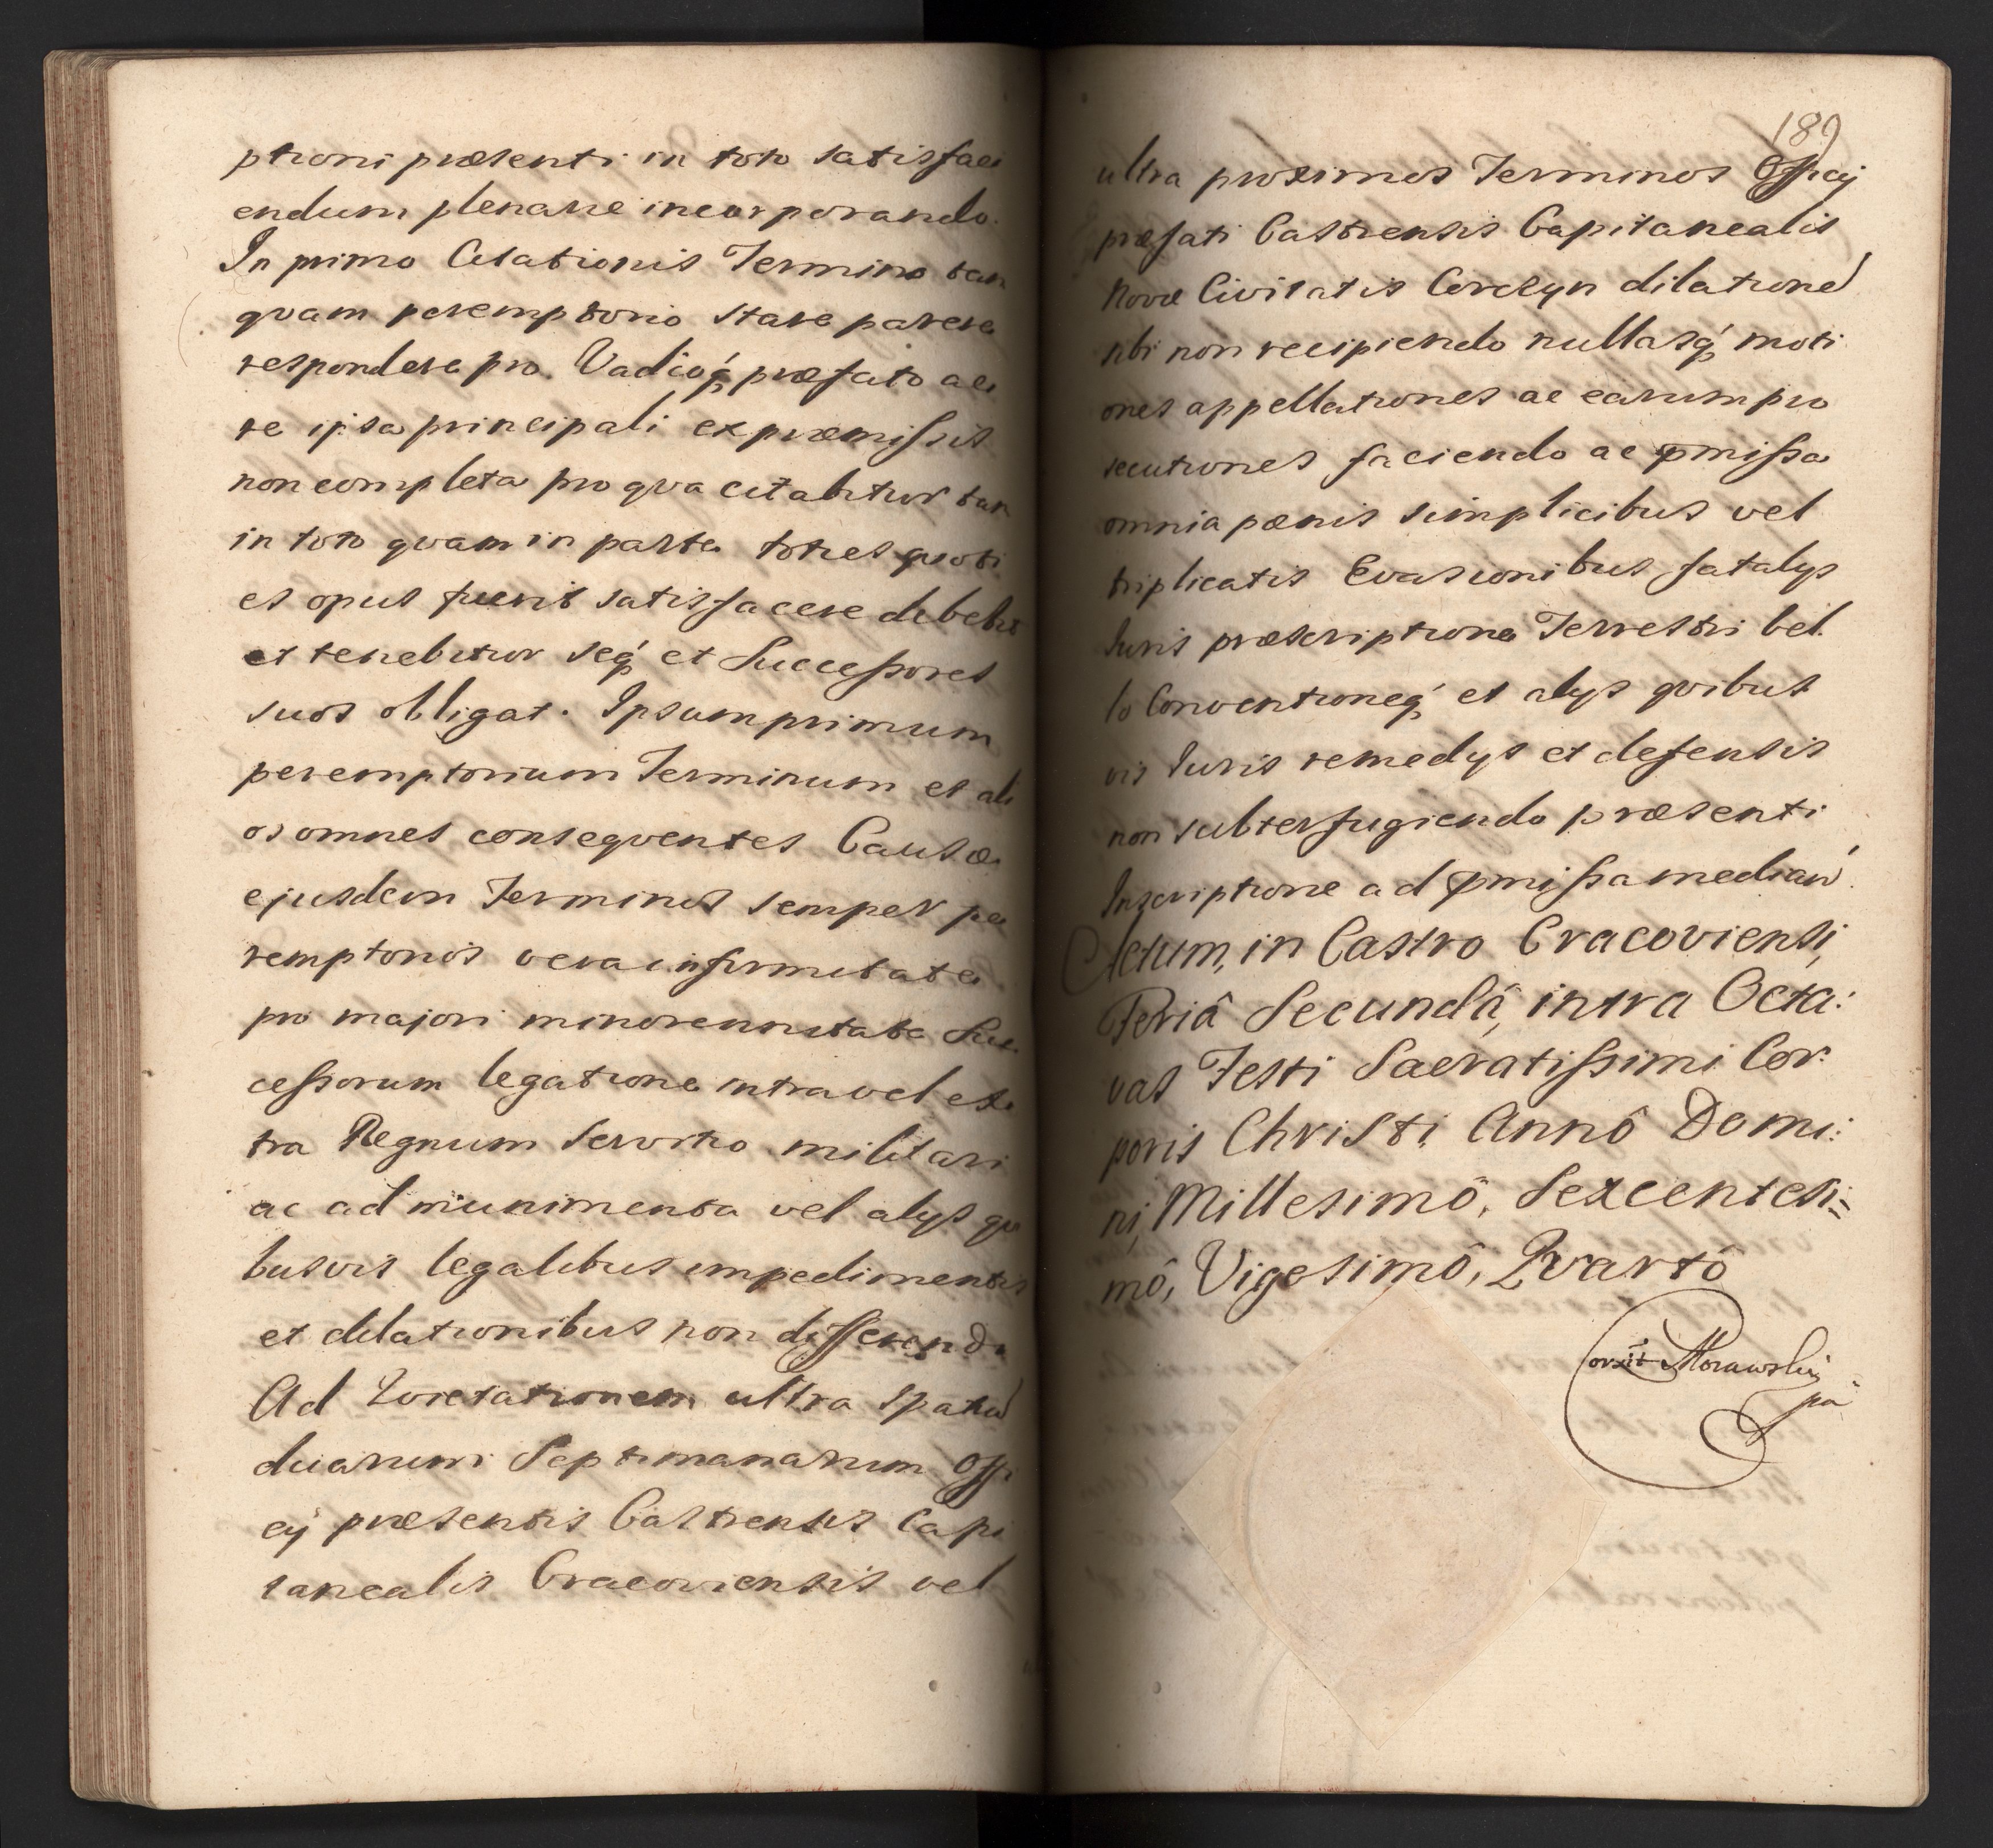 ptioni præsenti in toto satisfaci
endum plenarie incorporando.
In primo Citationis Termino tan
qvam peremptorio stare parere
respondere pro Vadioq́ præfato ac
re ipsa principali ex præmissis
non completa pro qva citabitur tam
in toto qvam in parte toties qvoti
es opus fuerit satisfacere debebit
et tenebitur seq́ et Successores
suos obligat. Ipsum primum
peremptorium Terminum et ali
os omnes conseqventes Causæ
ejusdem Terminos semper pe
remptorios vera infirmitate
pro majori minorennitate Suc
cessorum legatione intra vel ex
tra Regnum Servitio militari
ac ad munimenta vel alys qvi
busvis legalibus impedimentis
et dilationibus non differendo
Ad Lucrationem ultra spatiu
duarum Septimanarum Offi
cÿ præsentis Castrensis Capi
tanealis Cracoviensis vel
189
ultra proximos Terminos Officÿ
præfati Castrensis Capitanealis
Novæ Civitatis Corczyn dilatione
sibi non recipiendo nullasq́ moti
ones appellationes ac earum pro
secutiones faciendo ac pmissa
omnia pœnis simplicibus vel
triplicatis Evasionibus fatalys
Iuris præscriptione Terrestri bel
lo Conventioneq́ et alys qvibus
vis Iuris remedys et defensis
non subterfugiendo præsenti
Inscriptione ad pmissa median.
Actum, in Castro Cracoviensi,
Feriâ Secundâ, intra Octa:
vas Festi Sacratissimi Cor:
poris Christi Annô Domi:
ni, Millesimô, Sexcentesi=
mô, Vigesimô, Qvartô
Corxit Morawskij